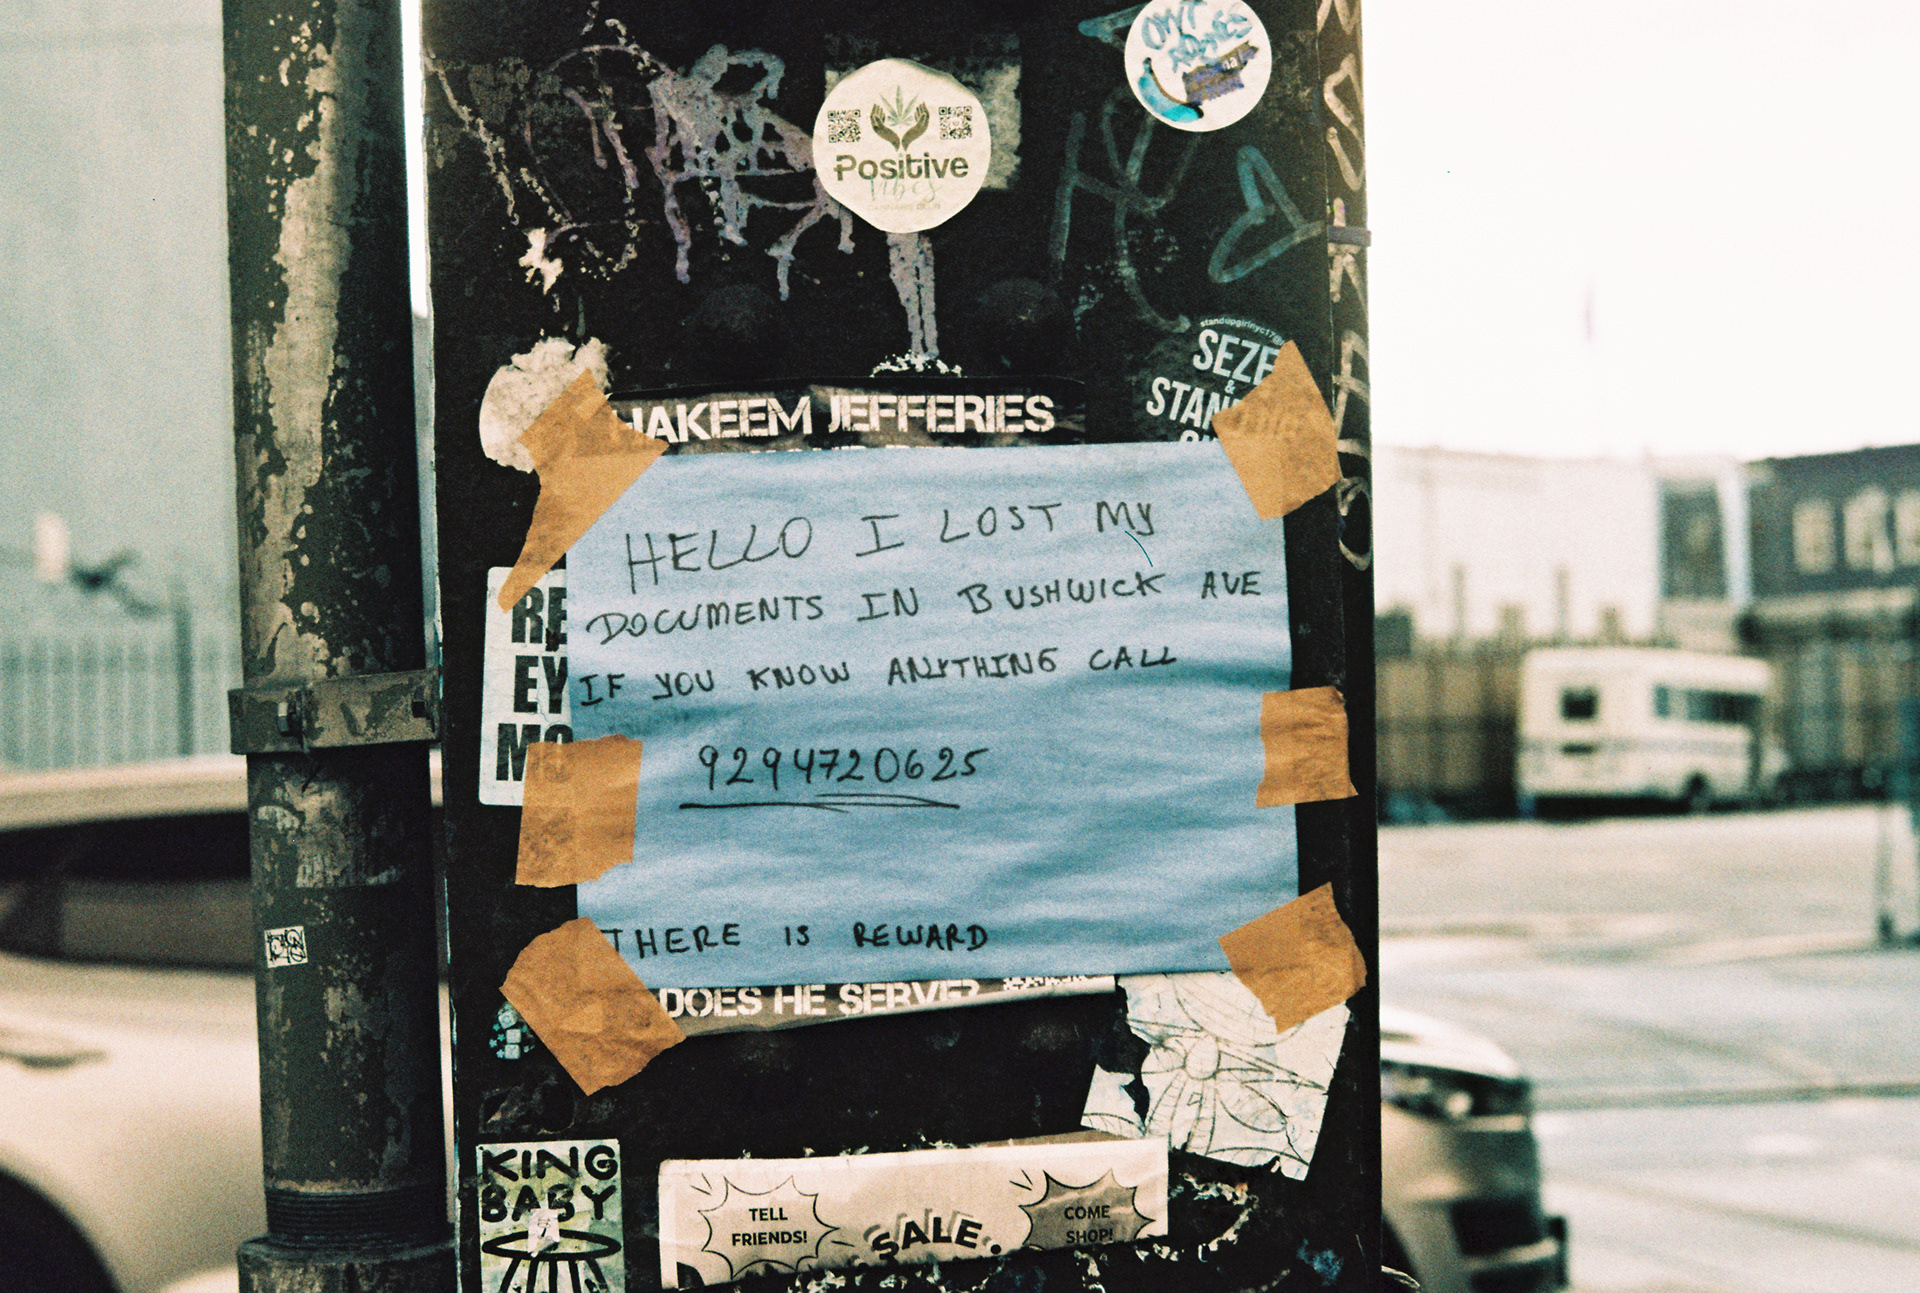 OWT
Positive
Vibes
standupgirlnyc17@
SEZE
&
STAN
HAKEEM JEFFERIES
HELLO I LOST MY
DOCUMENTS IN BUSHWICK AVE
IF YOU KNOW ANYTHING CALL
9294720625
THERE IS REWARD
RE
EY
MO
DOES HE SERVE?
KING
BABY
TELL
FRIENDS!
SALE.
COME
SHOP!